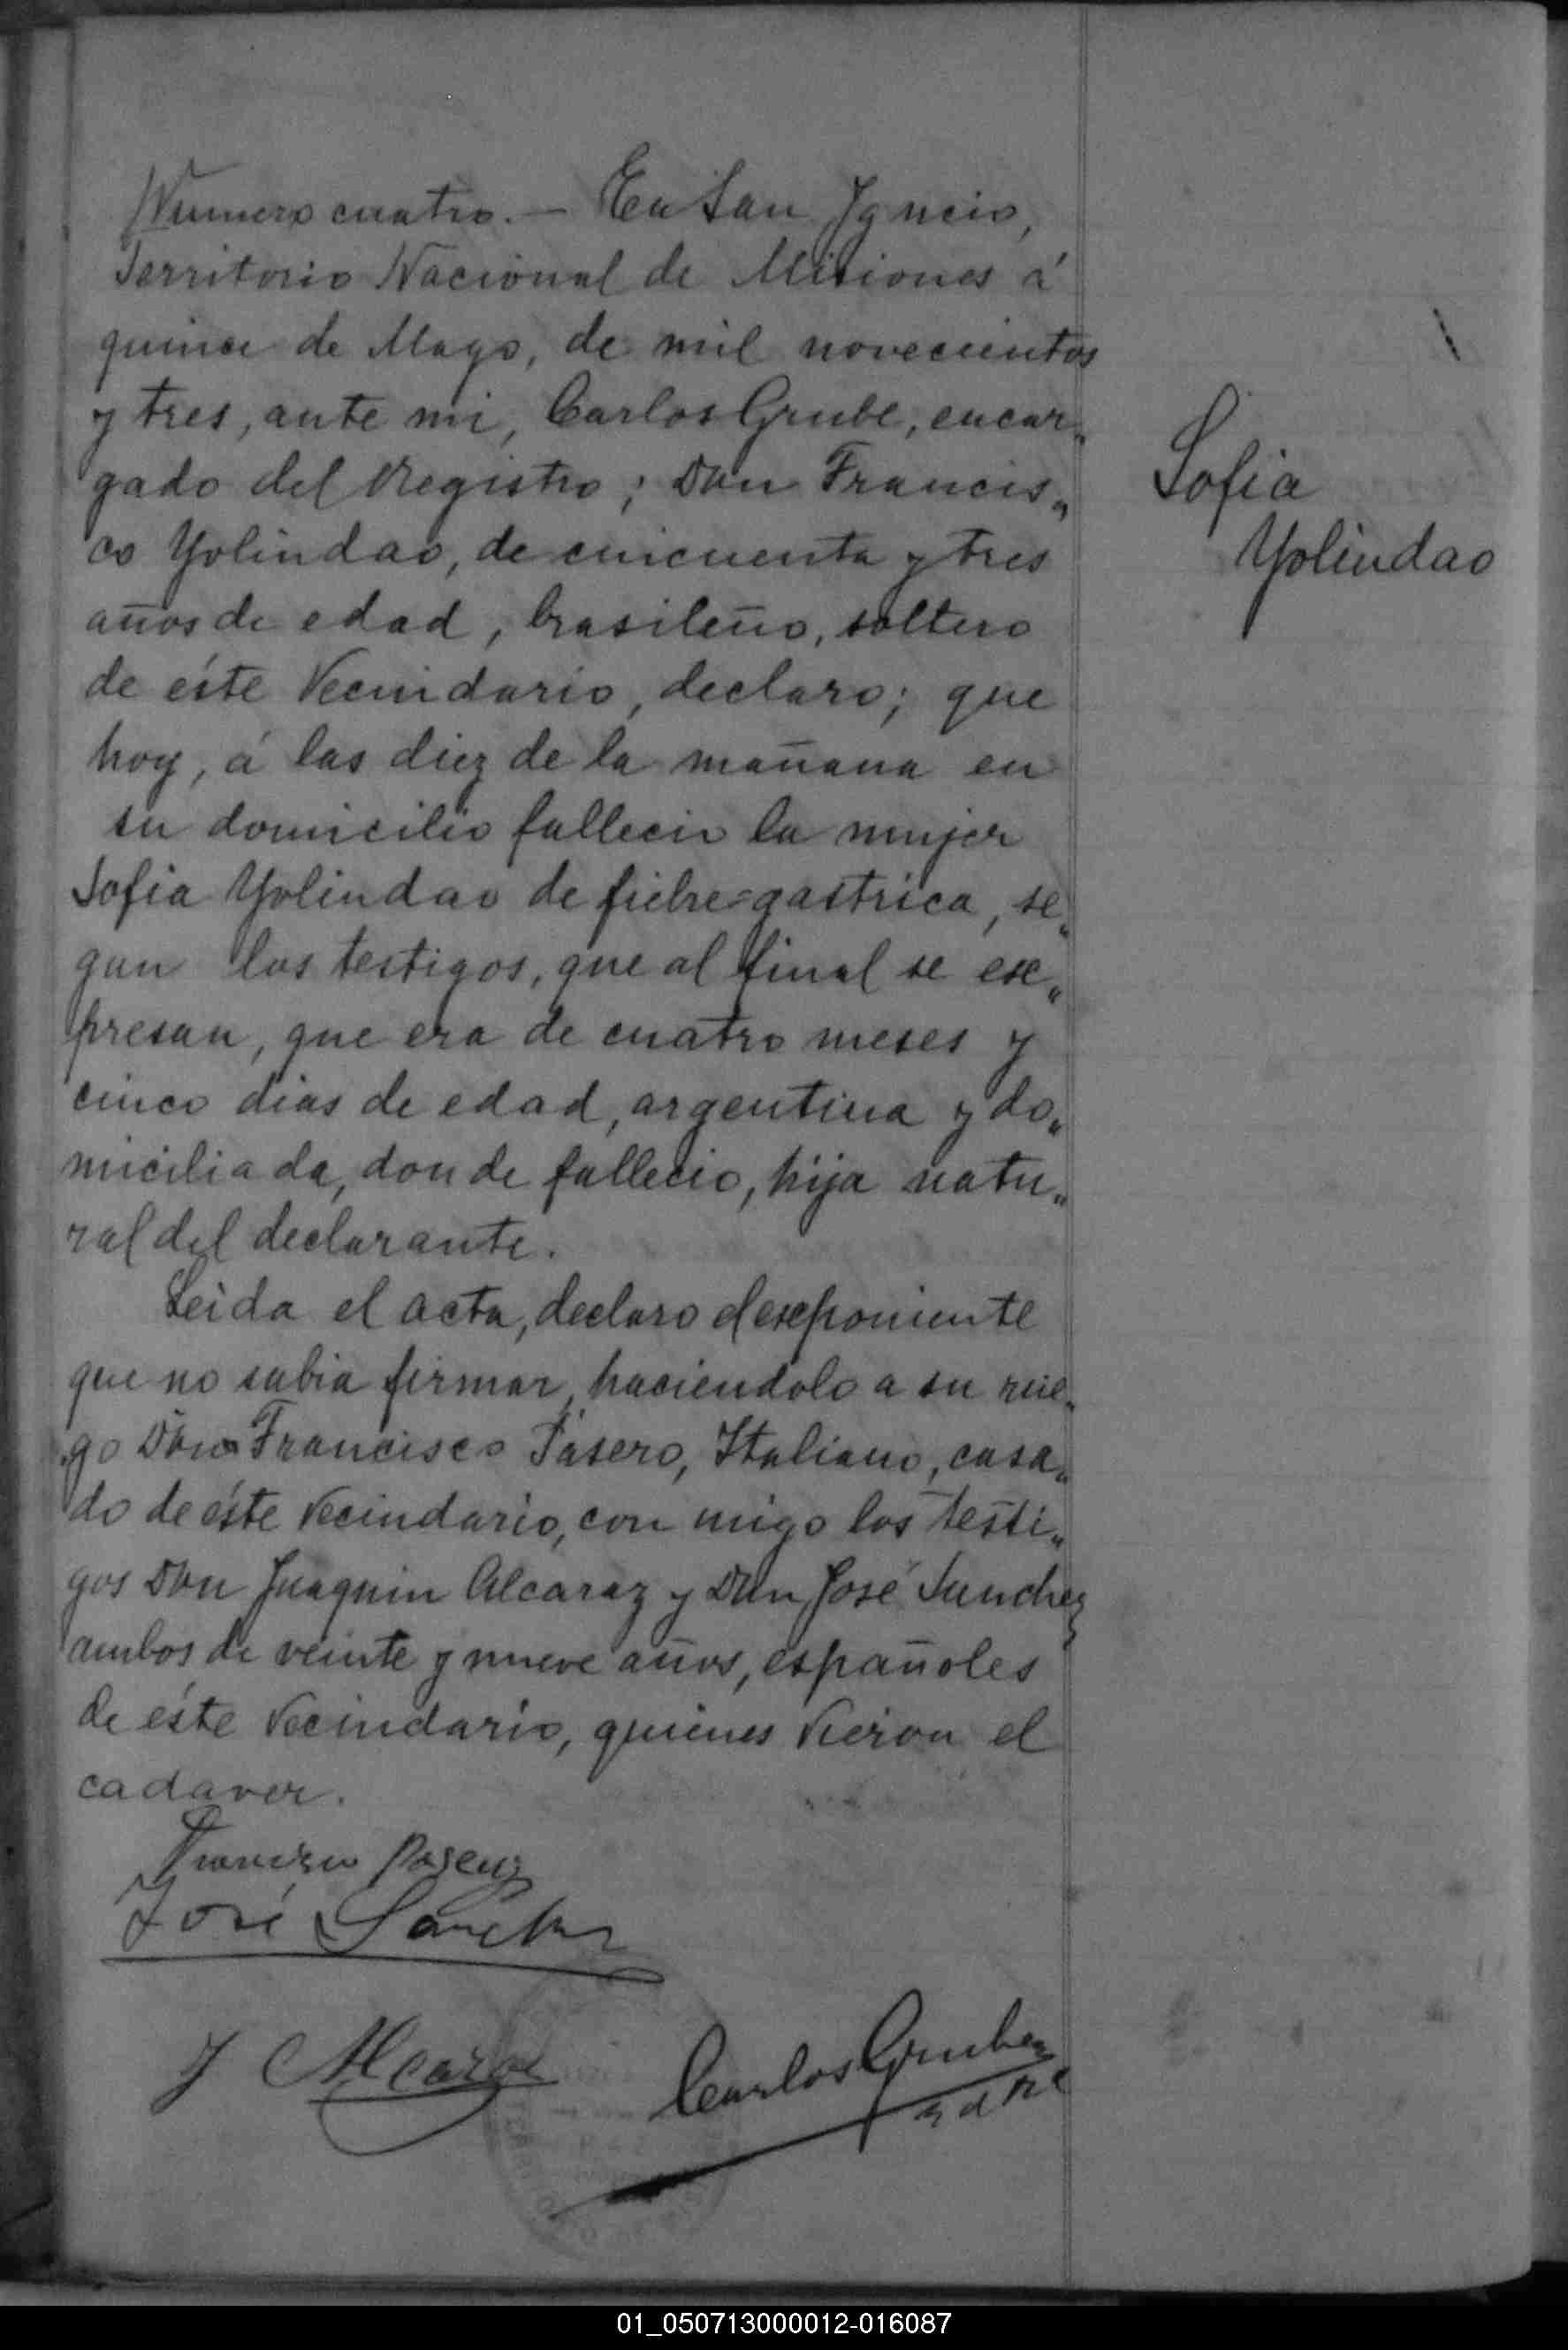 Numero cuatro. — En San Ygncio,
Territorio Nacional de Misiones á
quince de Mayo, de mil novecientos
y tres, ante mi, Carlos Grube, encar„
gado del Registro; Don Francis„
co Yolindao, de cincuenta y tres
años de edad, brasileño, soltero
de éste Vecindario, declaro; que
hoy, á las diez de la mañana en
su domicilio fallecio la mujer
Sofia Yolindao de fiebre=gastrica, se„
gun los testigos, que al final se ex„
presan, que era de cuatro meses y
cinco dias de edad, argentina y do„
miciliada, donde fallecio, hija natu„
ral del declarante.
Leida el acta, declaro el exponiente
que no sabia firmar, haciendolo a su rue„
go Don Francisco Pasero, Italiano, casa„
do de éste Vecindario, con migo los testi„
gos Don Juaquin Alcaraz y Don José Sanchez
ambos de veinte y nueve años, españoles
de éste Vecindario, quienes Vieron el
cadaver.
Sofia
Yolindao
José Sanchez
J Alcaraz
Carlos Grube
01_050713000012-016087